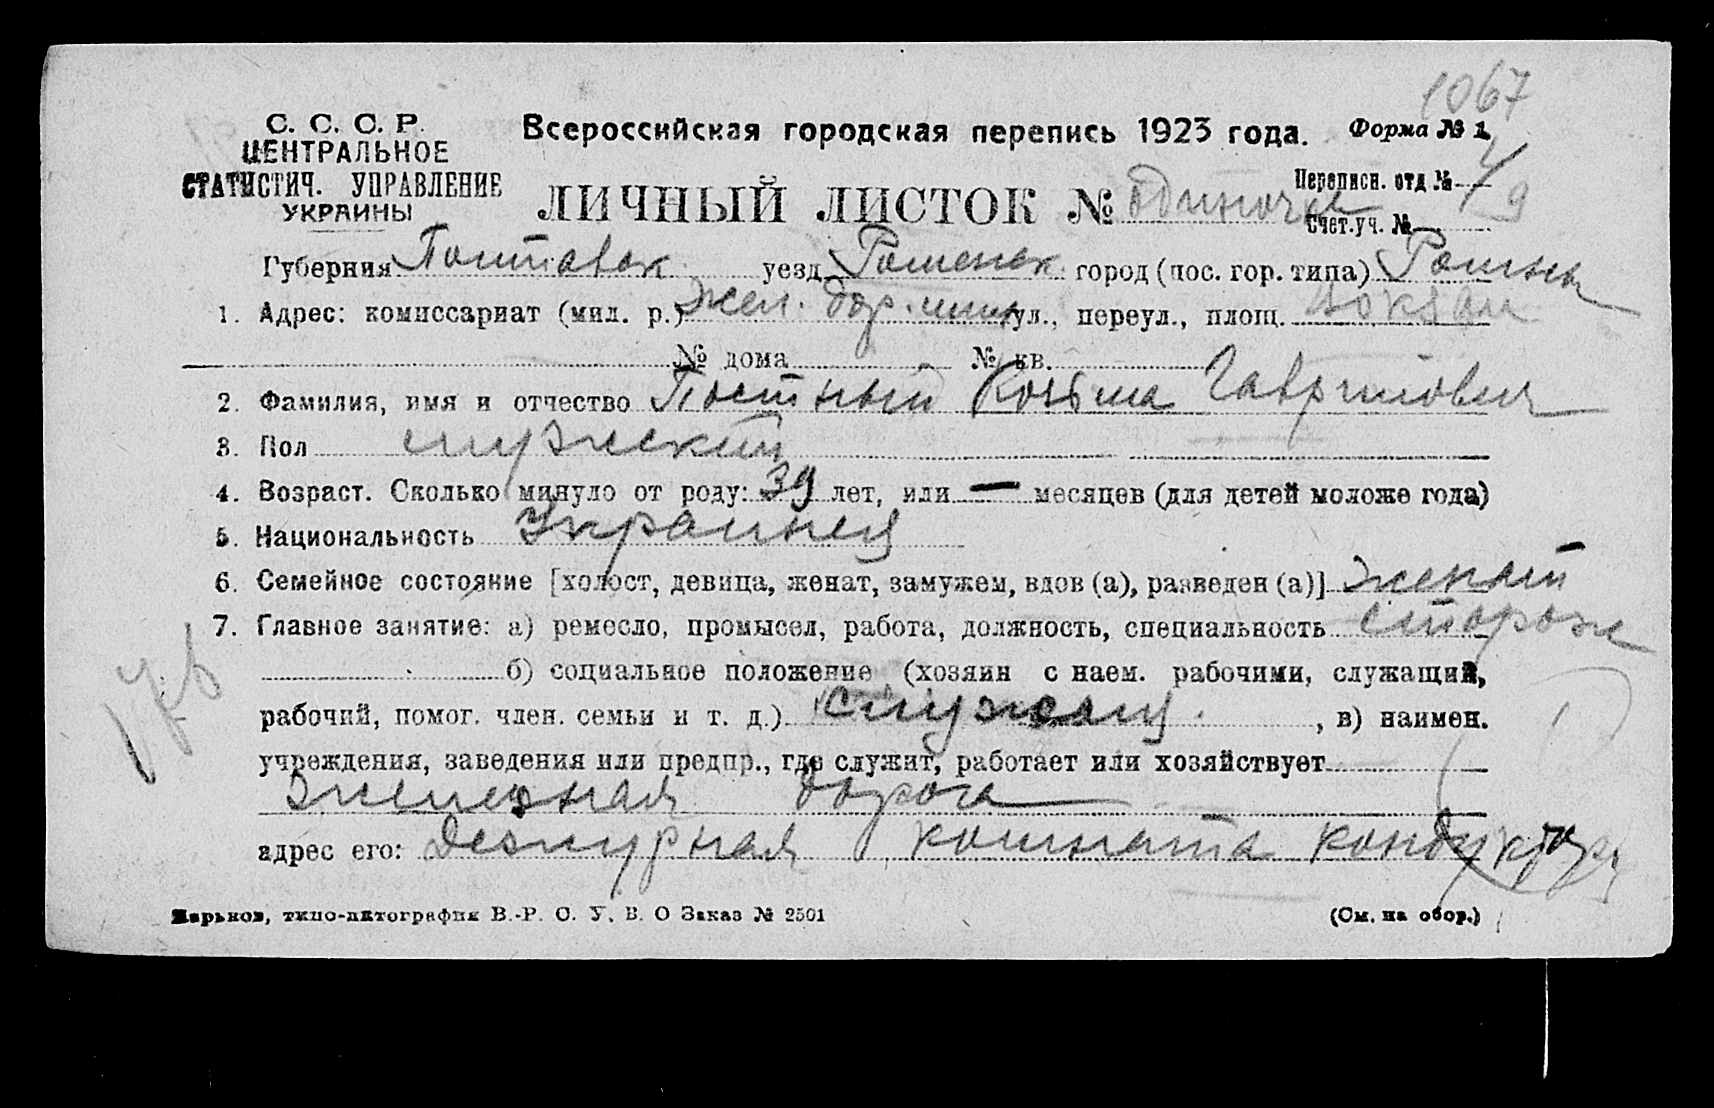 1067
С. С. С. Р.
ЦЕНТРАЛЬНОЕ
СТАТИСТИЧ. УПРАВЛЕНИЕ
УКРАИНЫ
Всероссийская городская перепись 1923 года. Форма № 1
Переписн. отд № 4
ЛИЧНЫЙ ЛИСТОК № одиночка
Счет.уч. № 9
Губерния Полтавск уезд Роменск город (пос. гор. типа) Ромны
1. Адрес: комиссариат (мил. р.) жел. дор. ул., переул., площ. вокзал
№ дома № кв.
2. Фамилия, имя и отчество Постный Козьма Гаврилович
3. Пол мужский
4. Возраст. Сколько минуло от роду: 39 лет, или — месяцев (для детей моложе года)
5. Национальность Украинец
6. Семейное состояние [холост, девица, женат, замужем, вдов (а), разведен (а)] женат
7. Главное занятие: а) ремесло, промысел, работа, должность, специальность сторож
б) социальное положение (хозяин с наем. рабочими, служащий,
рабочий, помог. член. семьи и т. д.) служащ. , в) наимен.
учреждения, заведения или предпр., где служит, работает или хозяйствует
железная дорога
адрес его: Дежурная комната кондуктор
Харьков, типо-литография В.-Р. С. У. В. О Заказ № 2501
(См. на обор.)